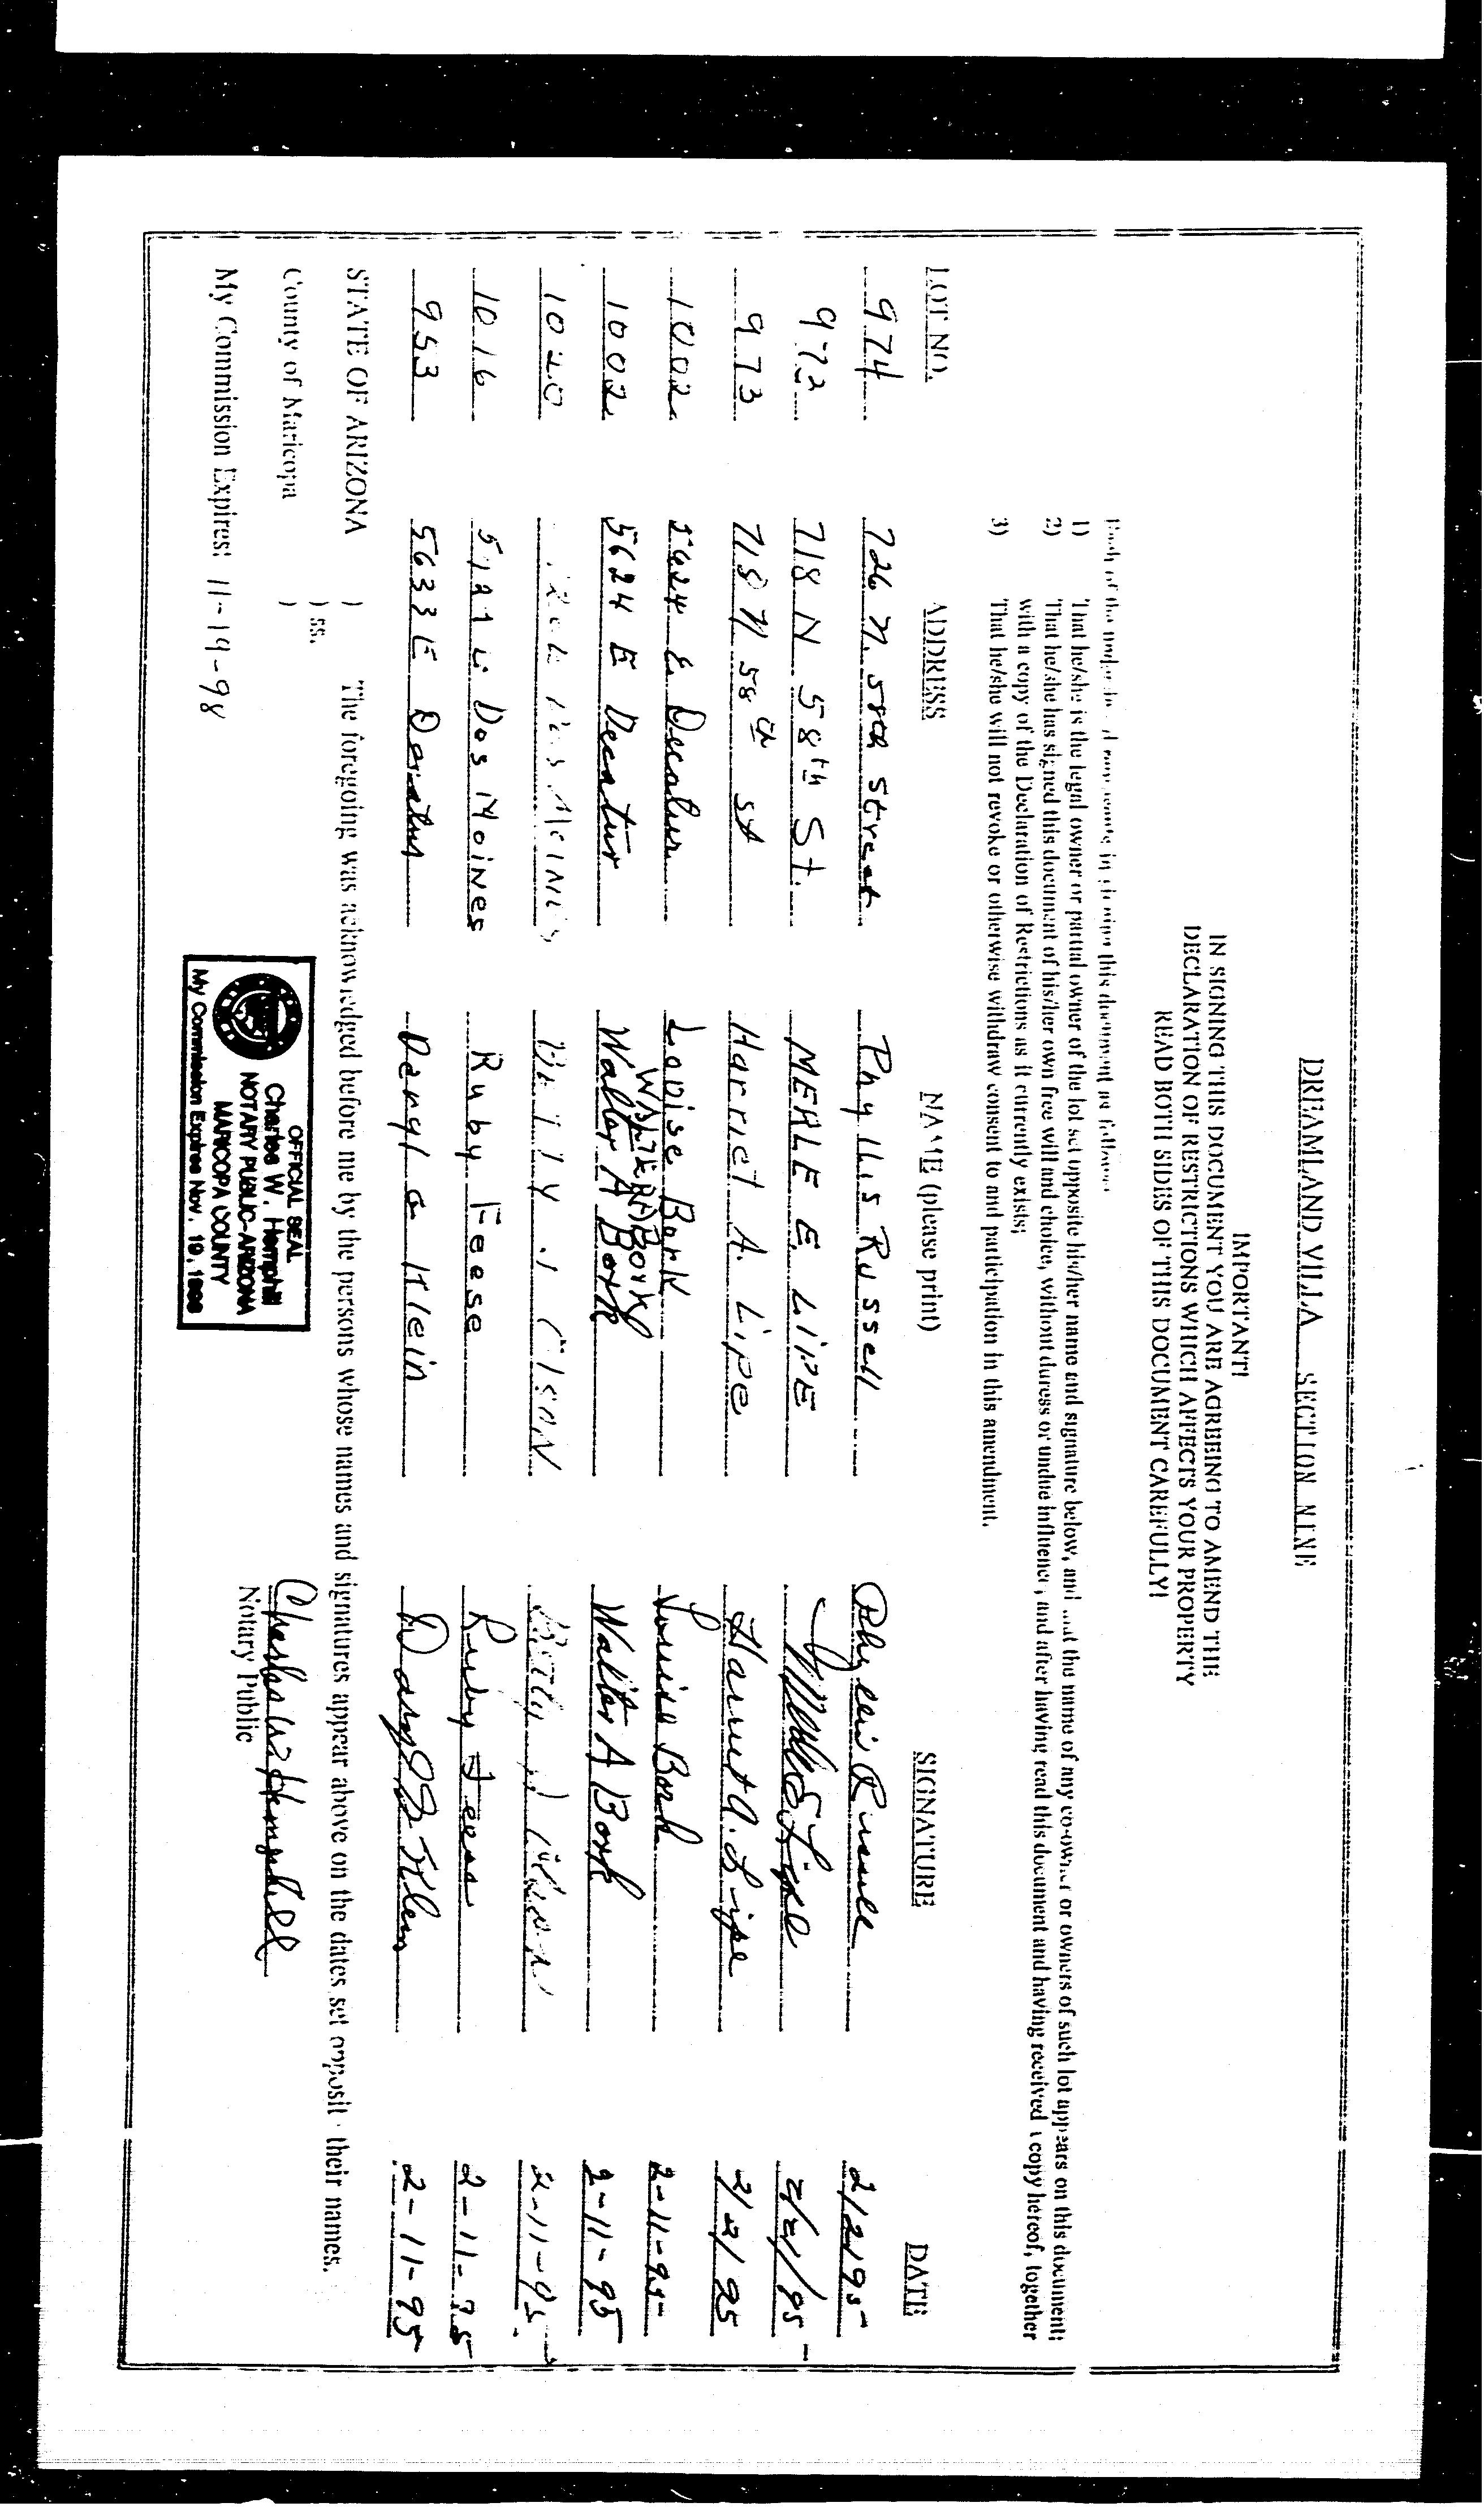 DREAMLAND VILLA SECTION NINE
IMPORTANT!
IN SIGNING THIS DOCUMENT YOU ARE AGREEING TO AMEND THE
DECLARATION OF RESTRICTIONS WHICH AFFECTS YOUR PROPERTY
READ BOTH SIDES OF THIS DOCUMENT CAREFULLY!
in this document as follows:
1) That he/she is the legal owner or partial owner of the lot set opposite his/her name and signature below, and that the name of any co-owner or owners of such lot appears on this document;
2) That he/she has signed this document of his/her own free will and choice, without duress or undue influence, and after having read this document and having received a copy hereof, together
with a copy of the Declaration of Restrictions as it currently exists;
3) That he/she will not revoke or otherwise withdraw consent to and participation in this amendment.
LOT NO. ADDRESS NAME (please print) SIGNATURE DATE
974 726 N. 58th Street Phyllis Russell Phyllis Russell 2/2/95
972 718 N 58th St. MERLE E. LIPE Merle E Lipe 2/2/95
973 718 N 58th St Harriet A. Lipe Harriet A. Lipe 2/2/95
1002 5624 E Decatur Louise Bork Louise Bork 2-11-95
WALTER A Bork
1002 5624 E Decatur Walter A Bork Walter A Bork 2-11-95
1020 Des Moines Betty J Olson Betty J Olson 2-11-95
1016 Des Moines Ruby Feese Ruby Feese 2-11-95
953 5633 E Decatur Daryl G Klein Daryl G Klein 2-11-95
STATE OF ARIZONA )
) ss. The foregoing was acknowledged before me by the persons whose names and signatures appear above on the dates set opposite their names.
County of Maricopa )
Charles W Hemphill
Notary Public
My Commission Expires: 11-19-98
OFFICIAL SEAL
Charles W. Hemphill
NOTARY PUBLIC-ARIZONA
MARICOPA COUNTY
My Commission Expires Nov. 19, 1998